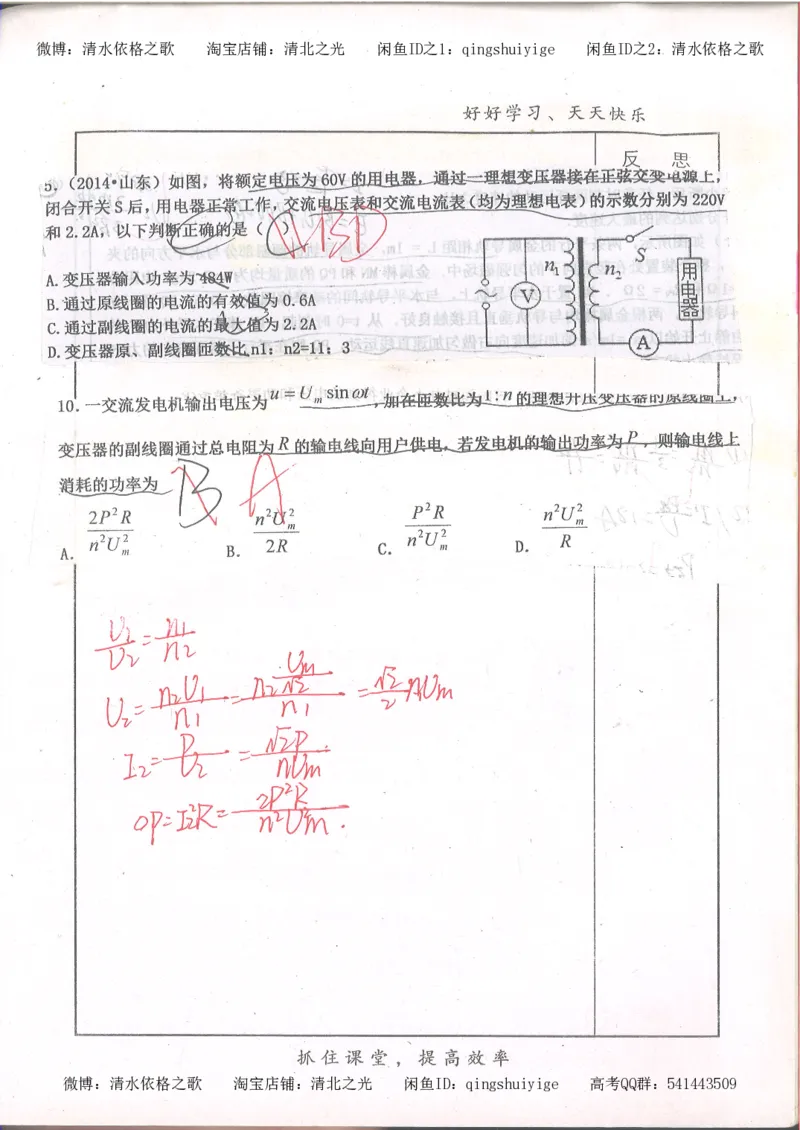 微博：清水依格之歌 淘宝店铺：清北之光 闲鱼ID之1：qingshuiyige 闲鱼ID之2：清水依格之歌
好好学习、天天快乐
反 思
5，（2014•山东）如图，将额定电压为 60V 的用电器，通过一理想变压器接在正弦交变电源上，
闭合开关 S 后，用电器正常工作，交流电压表和交流电流表（均为理想电表）的示数分别为 220V
和 2.2A，以下判断正确的是（ ）
BD
A.变压器输入功率为 484W
B.通过原线圈的电流的有效值为 0.6A
C.通过副线圈的电流的最大值为 2.2A
D.变压器原、副线圈匝数比 n1：n2=11：3
n₁ n₂ S V A 用电器
10.一交流发电机输出电压为 u=Uₘ sin ωt ，加在匝数比为 1:n 的理想升压变压器的原线圈上，
变压器的副线圈通过总电阻为 R 的输电线向用户供电，若发电机的输出功率为 P ，则输电线上
消耗的功率为 B A
A. 2P²R / n²Uₘ² B. n²Uₘ² / 2R C. P²R / n²Uₘ² D. n²Uₘ² / R
U₁/U₂ = n₁/n₂
U₂ = n₂U₁/n₁ = n₂ (Um/√2) / n₁ = √2/2 nUm
I₂ = P/U₂ = √2P/nUm
OP = I₂²R = 2P²R / n²U²m .
抓住课堂，提高效率
微博：清水依格之歌 淘宝店铺：清北之光 闲鱼ID：qingshuiyige 高考QQ群：541443509